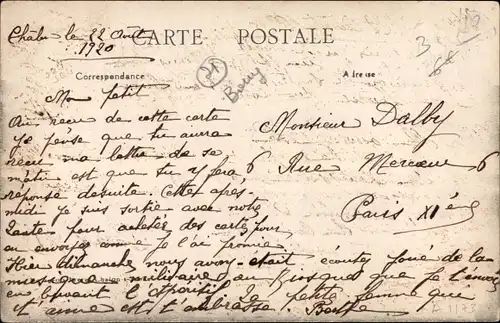 Châlu le 22 Août
1920
CARTE POSTALE
Correspondance
Adresse
21
Mon petit
reçu de cette carte
Je pense que tu aura
reçu ma lettre de se
matin est que tu y fera
réponse desuite. Cette apres
midi je suis sortie avec notre
Tante pour acheter des cartes pour
en envoyer comme je l'ai promis.
Hier dimanche nous avons était écoutes joué de la
musique militaire au Kiosque que je t'envoi
en buvant l'apéritif. Ta petite femme qui
t'aime est t'embrasse. Berthe
Monsieur Dalby
6 Rue Mercoeur 6
Paris XI ème